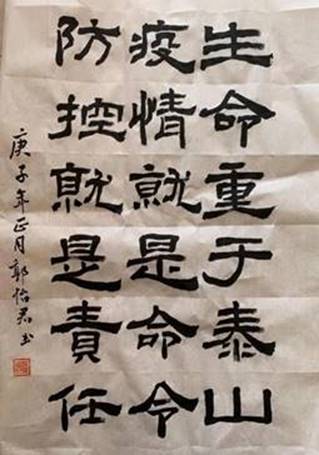 生命重于泰山
疫情就是命令
防控就是責任
庚子年正月郭怡君书